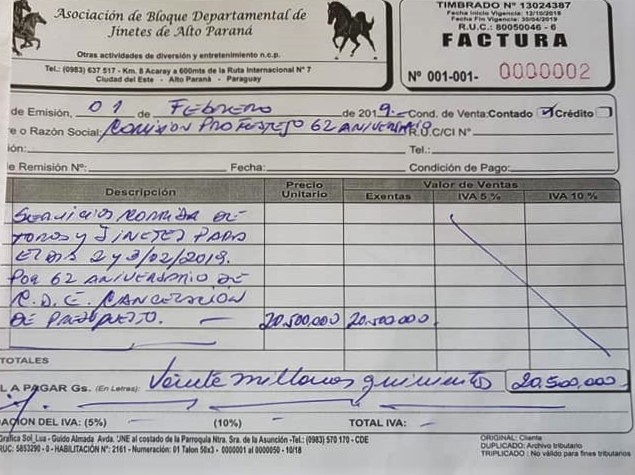 Asociación de Bloque Departamental de
Jinetes de Alto Paraná
Otras actividades de diversión y entretenimiento n.c.p.
Tel.: (0983) 637 517 - Km. 8 Acaray a 600mts de la Ruta Internacional N° 7
Ciudad del Este - Alto Paraná - Paraguay
TIMBRADO N° 13024387
Fecha Inicio Vigencia: 12/10/2018
Fecha Fin Vigencia: 30/04/2019
R.U.C.: 80050046 - 6
FACTURA
N° 001-001- 0000002
de Emisión, 01 de FEBRERO de 2019.- Cond. de Venta: Contado Crédito
e o Razón Social: COMISION PRO FESTEJO 62 ANIVERSARIO R.U.C/CI N°
ión: Tel.:
e Remisión N°: Fecha: Condición de Pago:
Descripción Precio Unitario Valor de Ventas
Exentas IVA 5% IVA 10 %
SERVICIOS CORRIDA DE
TOROS Y JINETES PARA
EL DIA 2 y 3/02/2019.
POR 62 ANIVERSARIO DE
C.D.E. CANCELACIÓN
DE PRESUPUESTO. — 20.500,000 20.500.000.
TOTALES
L A PAGAR Gs. (En Letras): Veinte millones quiniento 20,500,000.-
ACION DEL IVA: (5%) — (10%) — TOTAL IVA: —
Gráfica Sol_Lua - Guido Almada Avda. UNE al costado de la Parroquia Ntra. Sra. de la Asunción -Tel.: (0983) 570 170 - CDE
RUC: 5853290 - 0 - HABILITACIÓN N°: 2161 - Numeración: 01 Talon 50x3 - 0000001 al 0000050 - 10/18
ORIGINAL: Cliente
DUPLICADO: Archivo tributario
TRIPLICADO: No válido para fines tributarios